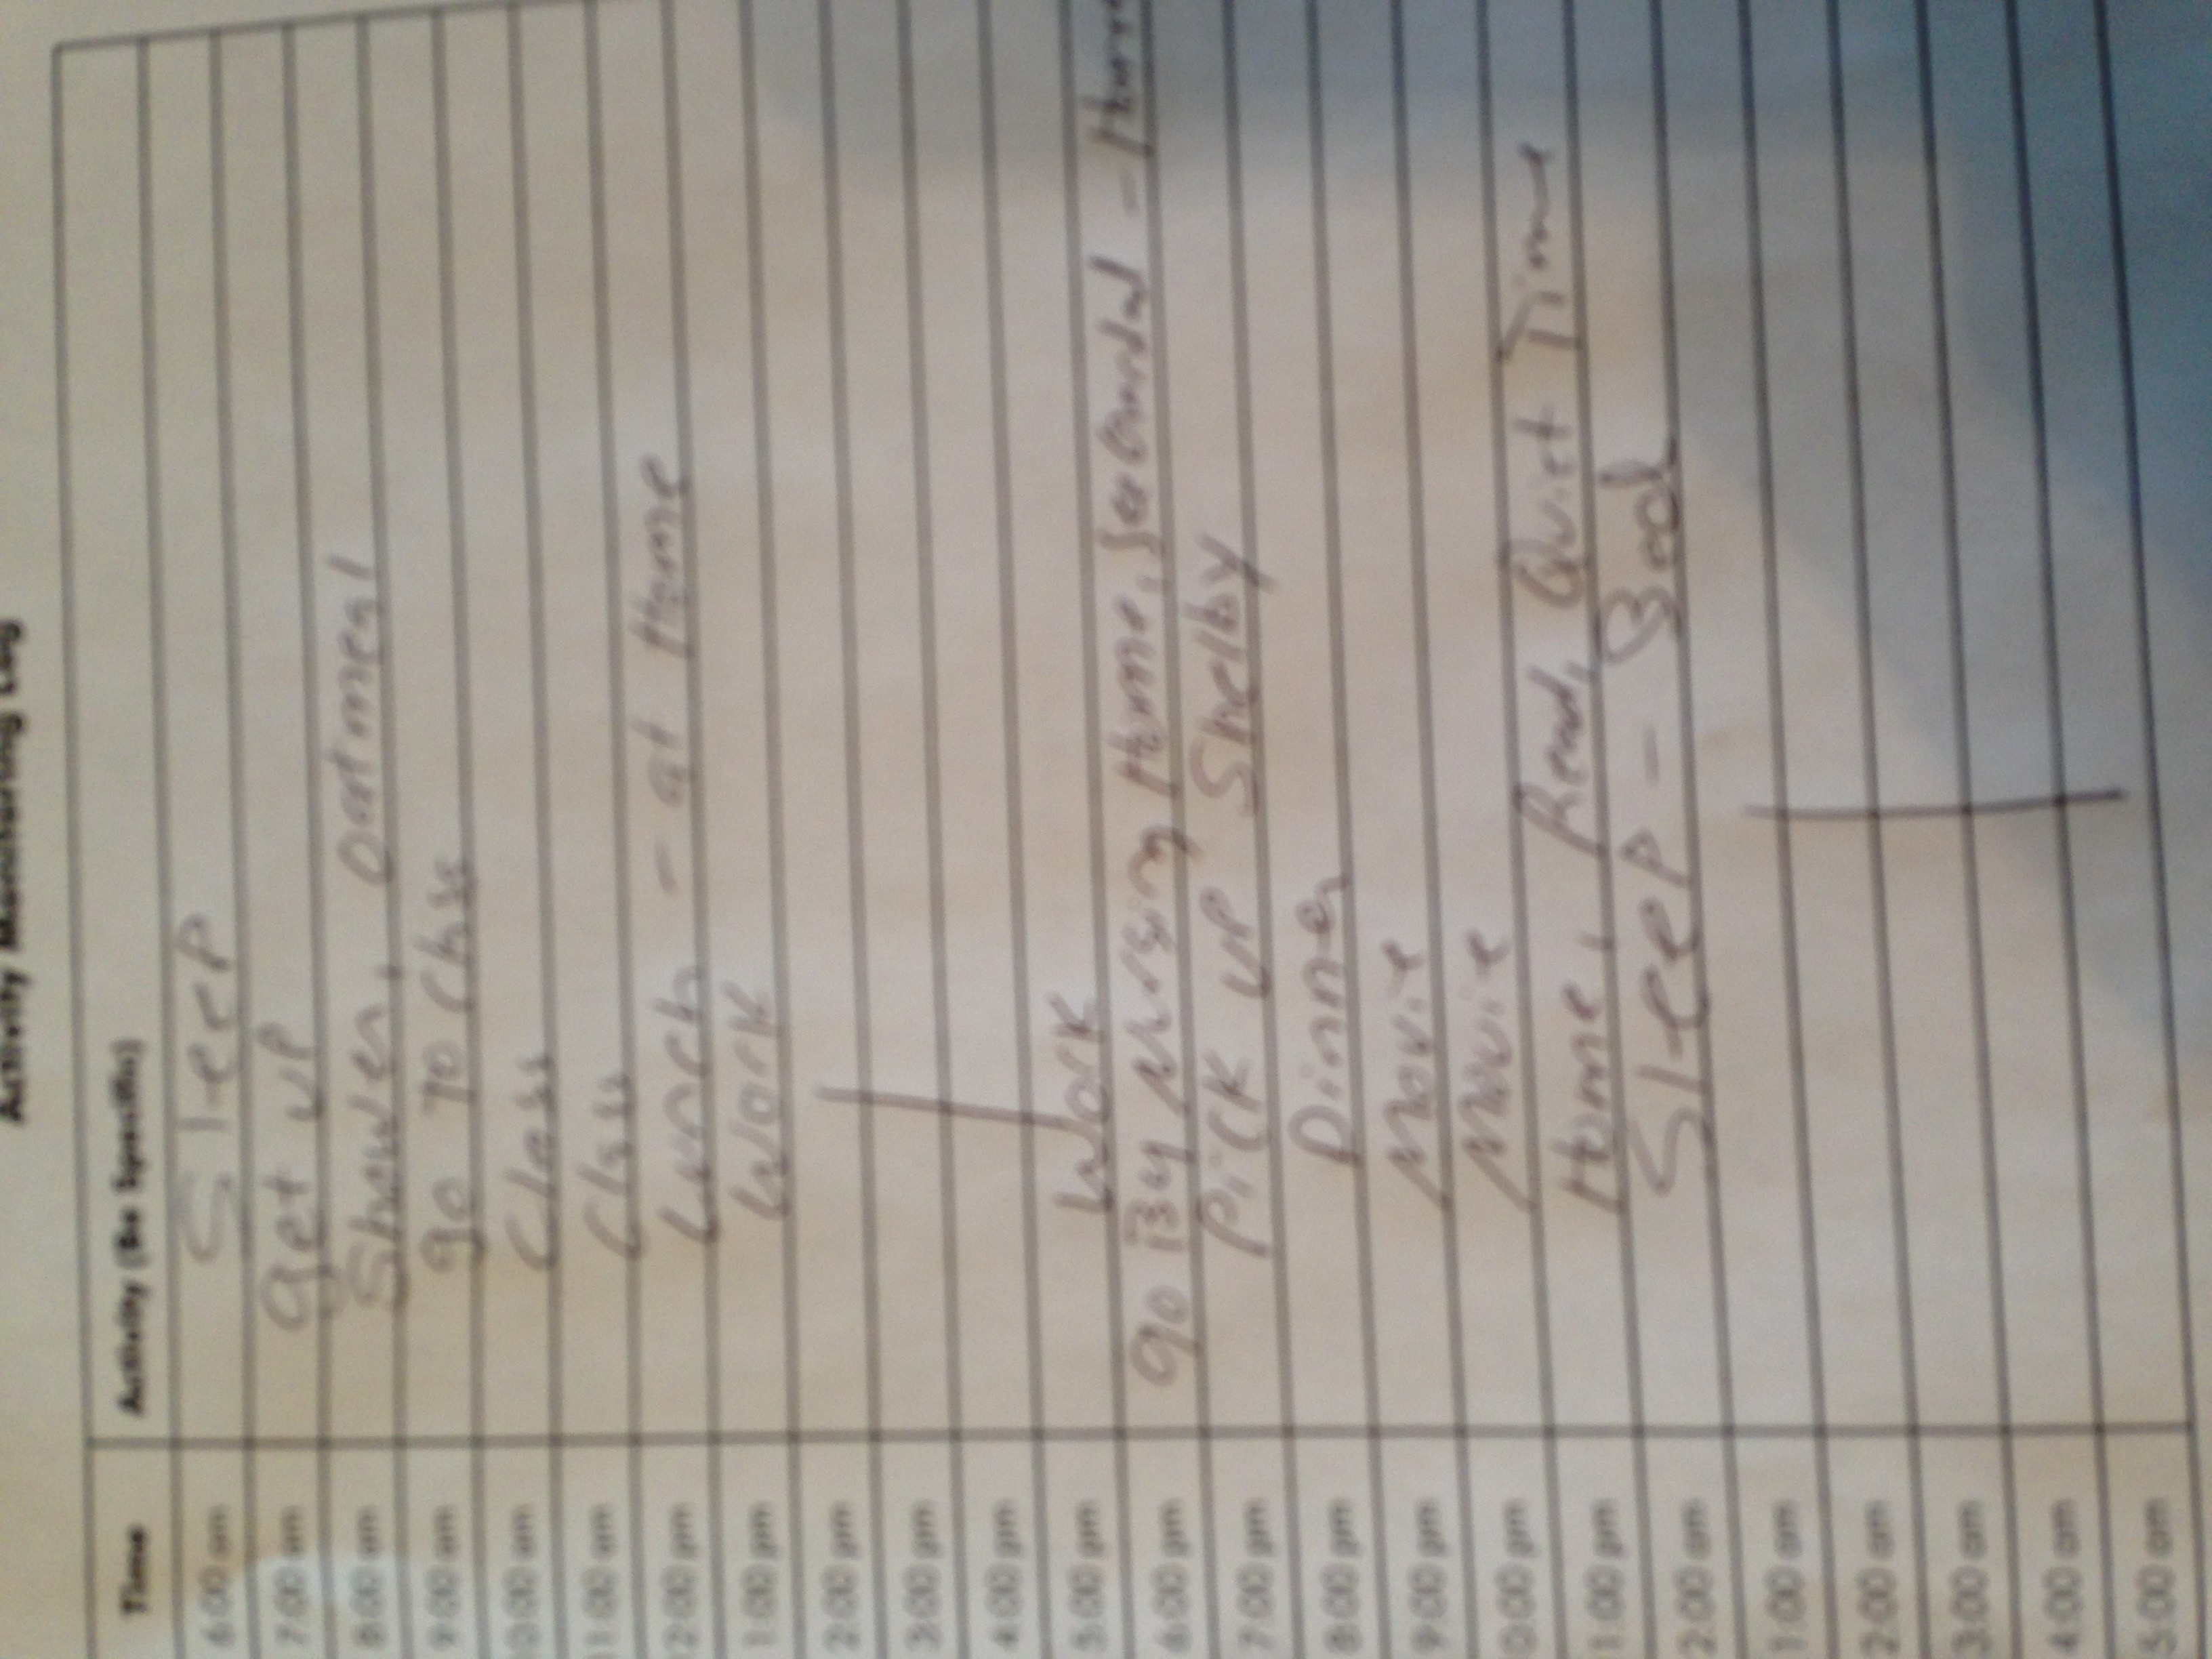 Activity Monitoring Log
Time Activity (Be Specific)
6:00 am Sleep
7:00 am get up
8:00 am Shower, oatmeal
9:00 am go to class
10:00 am Class
11:00 am Class
12:00 pm Lunch - at Home
1:00 pm Work
2:00 pm
3:00 pm
4:00 pm
5:00 pm Work
6:00 pm go Nursing Home, - Home
7:00 pm Pick up Shelby
8:00 pm Dinner
9:00 pm Movie
10:00 pm Movie
11:00 pm Home, Read, Quiet Time
2:00 am Sleep - Bed
1:00 am
2:00 am
3:00 am
4:00 am
5:00 am